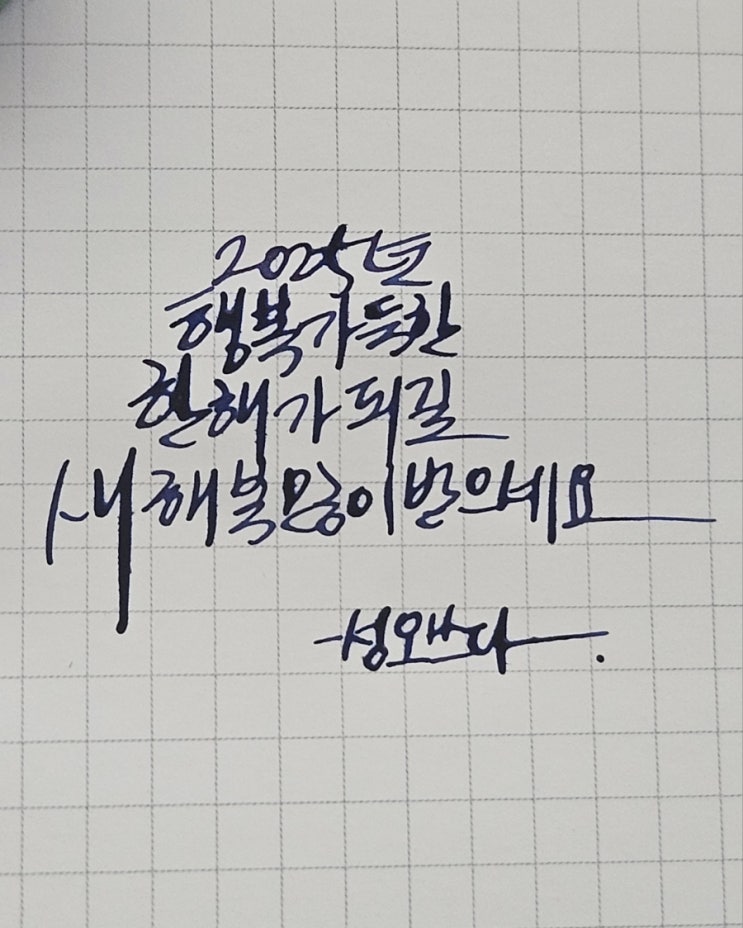 2025년
행복가득한
한해가되길
새해복많이받으세요